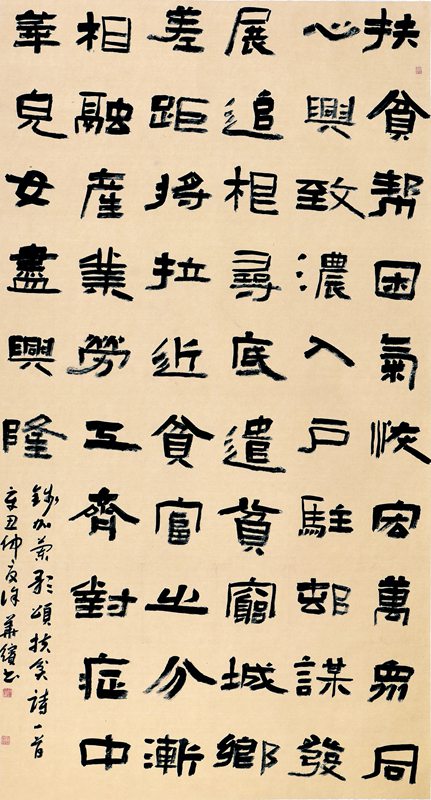 扶貧帮困氣恢宏萬眾同
心興致濃入戶駐邨謀發
展追根尋底遣貧窮城鄉
差距将拉近貧富之分漸
相融產業勞工齊對症中
華兒女盡興隆
錄加蘭歌頌扶貧詩一首
辛丑仲夏徐華書